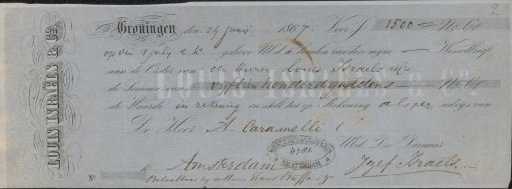 2
LOUIS ISRAELS & Co
Groningen den 24 Junij 1867 Voor ƒ 1500 = Ned Ct
op den 1 July e.k. gelieve UEd te betalen voor deze mijne Wisselbrief
aan de Order van de Heeren Louis Israels & Co
de Somma van Vijftien honderd guldens Ned Ct
de Waarde in rekening en stelt het op Rekening als per advys van
De Heer A. Caramelli UEd Dw Dienaar
4981
Amsterdam Jozef Israels
No Betaalbaar by de Heeren Frans Buffa